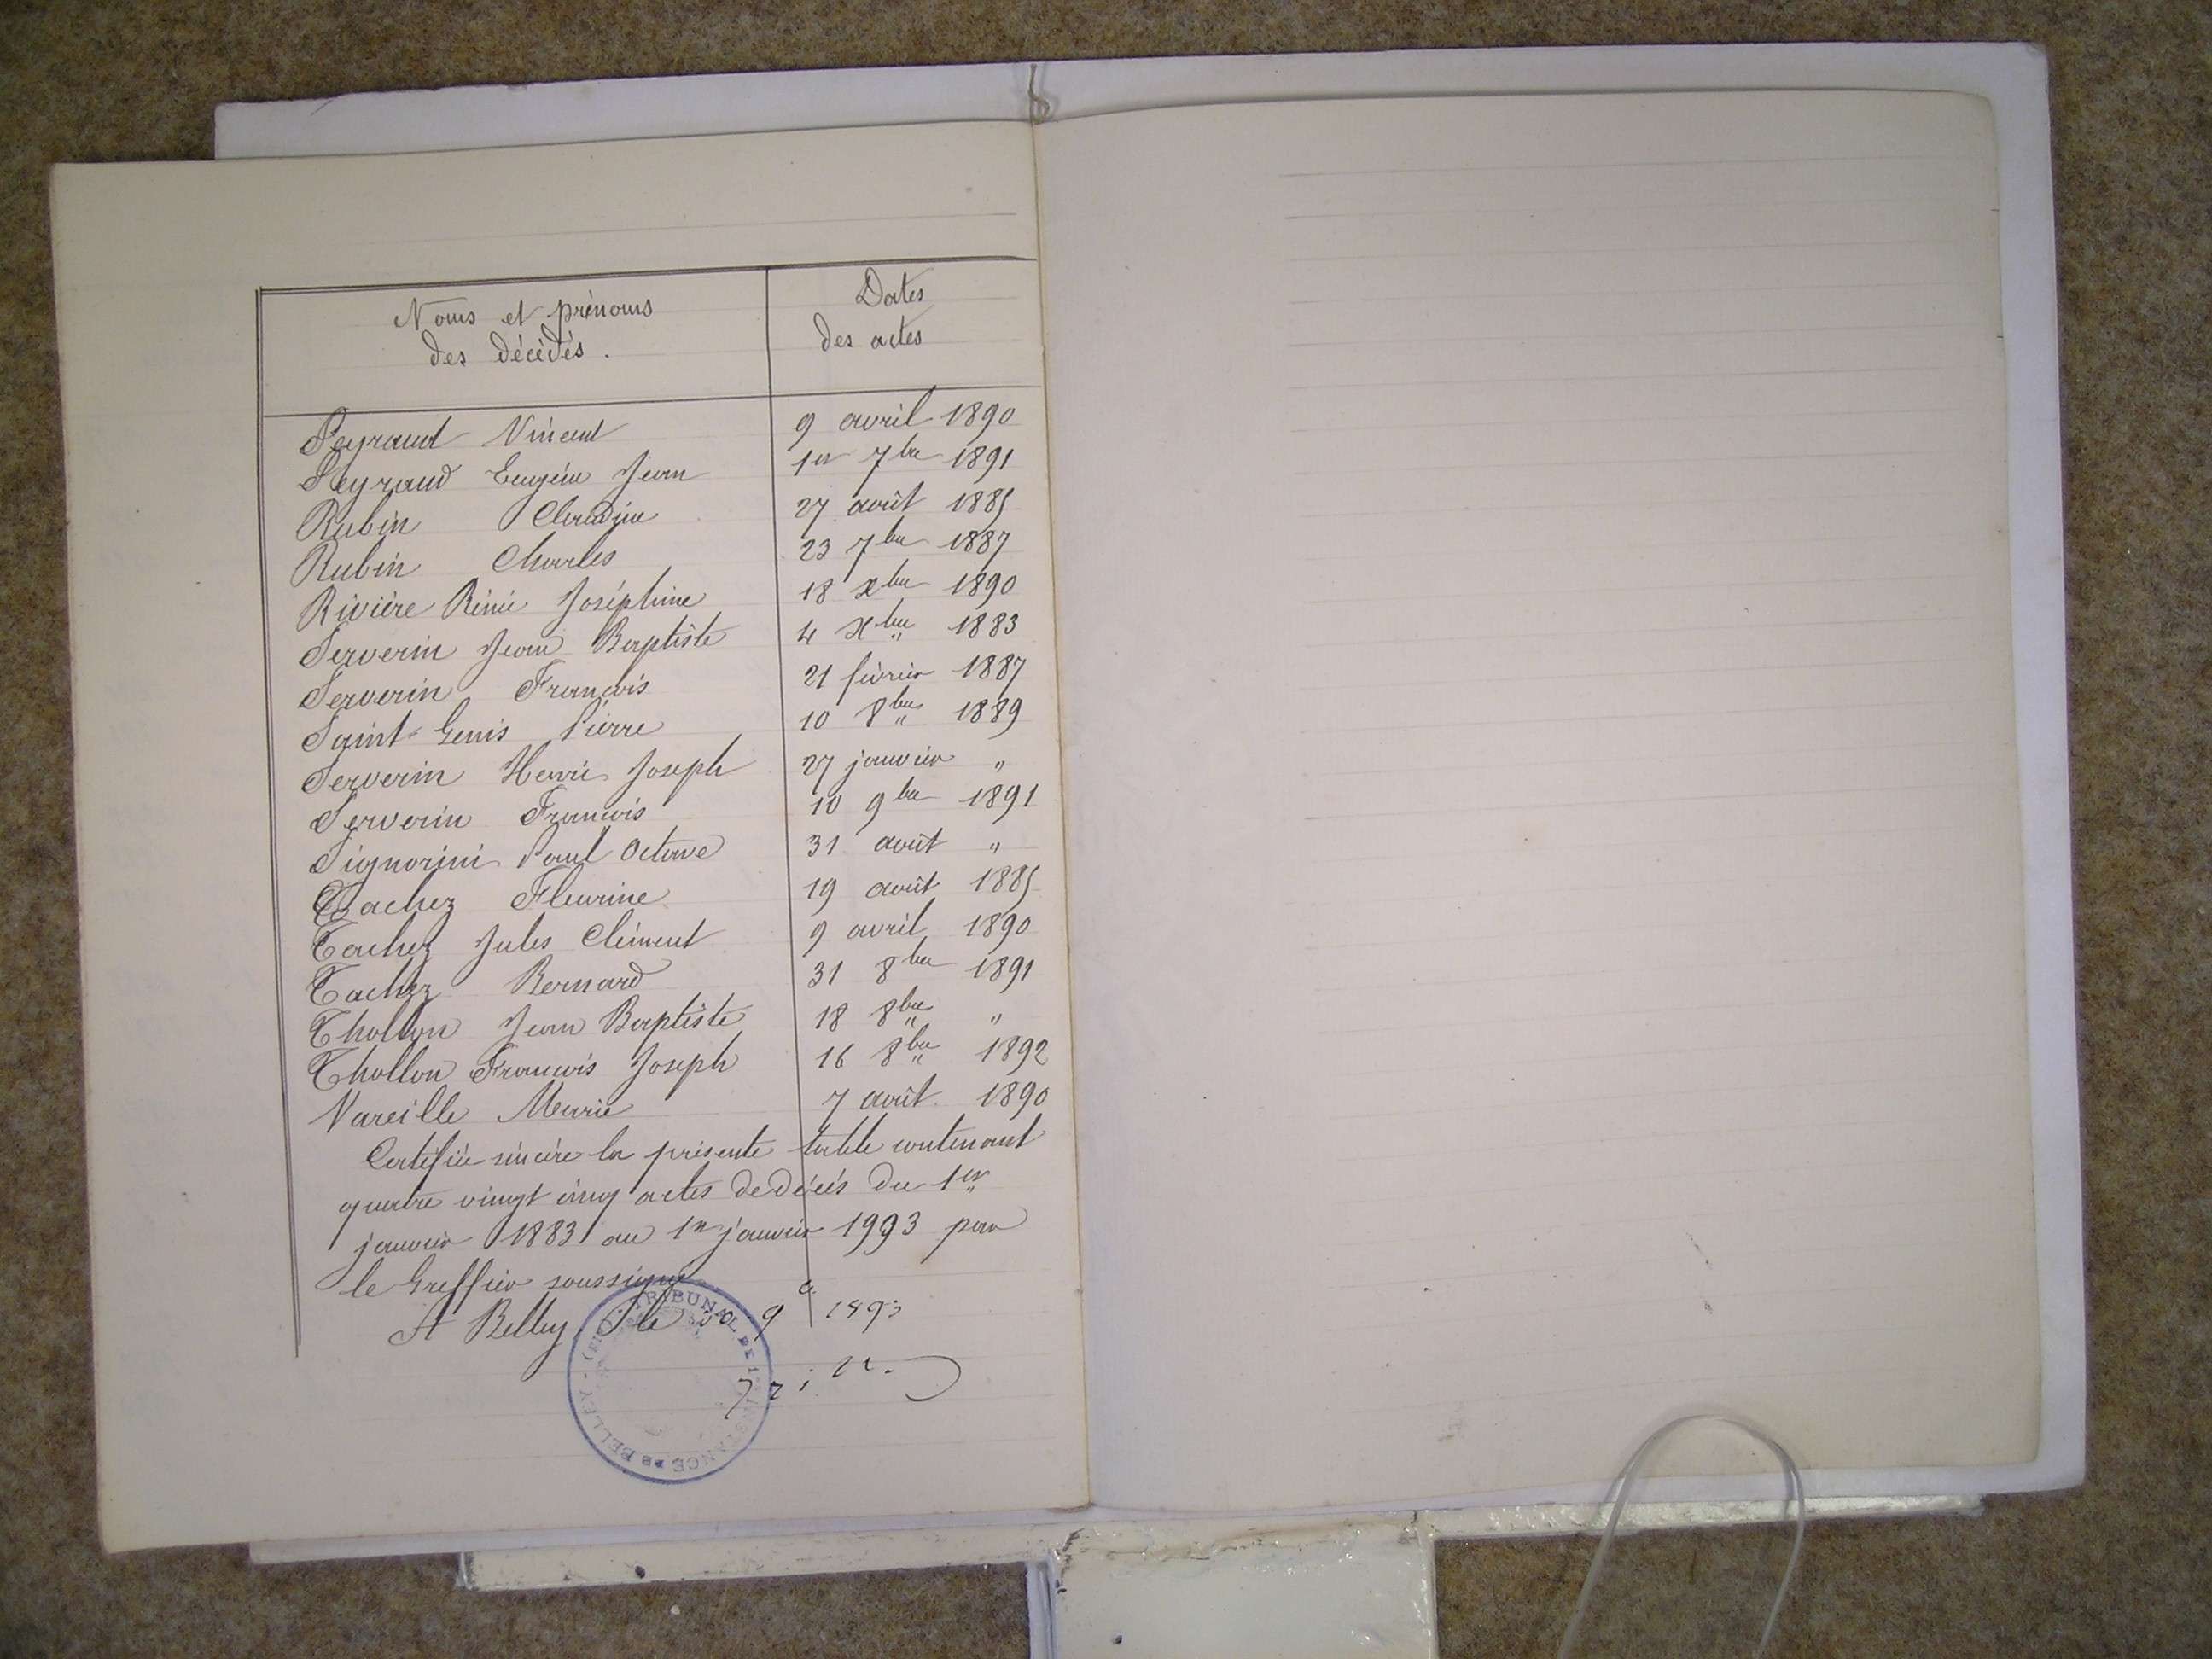 Noms et prénoms
des décédés.
Dates
des actes
Peyraud Vincent 9 avril 1890
Peyraud Eugénie Jean 1er 7bre 1891
Rubin Claudine 27 août 1885
Rubin Charles 23 7bre 1887
Rivière Rénée Joséphine 18 xbre 1890
Serverin Jean Baptiste 4 Xbre 1883
Serverin François 21 février 1887
Saint-Genis Pierre 10 8bre 1889
Serverin Henri Joseph 27 janvier "
Serverin François 10 9bre 1891
Signorini Paul Octave 31 août "
Tachez Fleurine 19 août 1885
Tachez Jules Clément 9 avril 1890
Tachez Bernard 31 8bre 1891
Thollon Jean Baptiste 18 8bre "
Thollon François Joseph 16 8bre 1892
Vareille Marie 7 août 1890
Certifiée sincère la présente table contenant
quatre vingt cinq actes de décès du 1er
janvier 1883 au 1er janvier 1993 par
le Greffier soussigné
A Belley, le 1893
TRIBUNAL DE 1ERE INSTANCE DE BELLEY